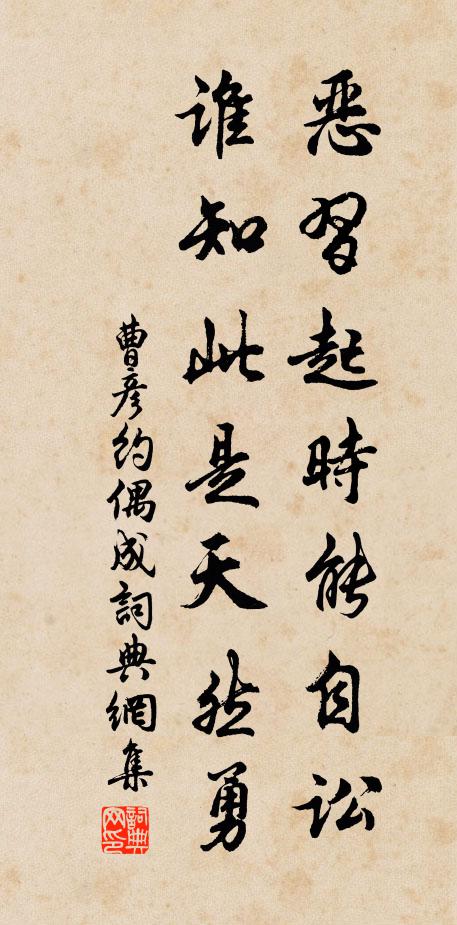 恶習起時能自訟
誰知此是天然勇
曹彦約偶成詞典網集
詞典网印